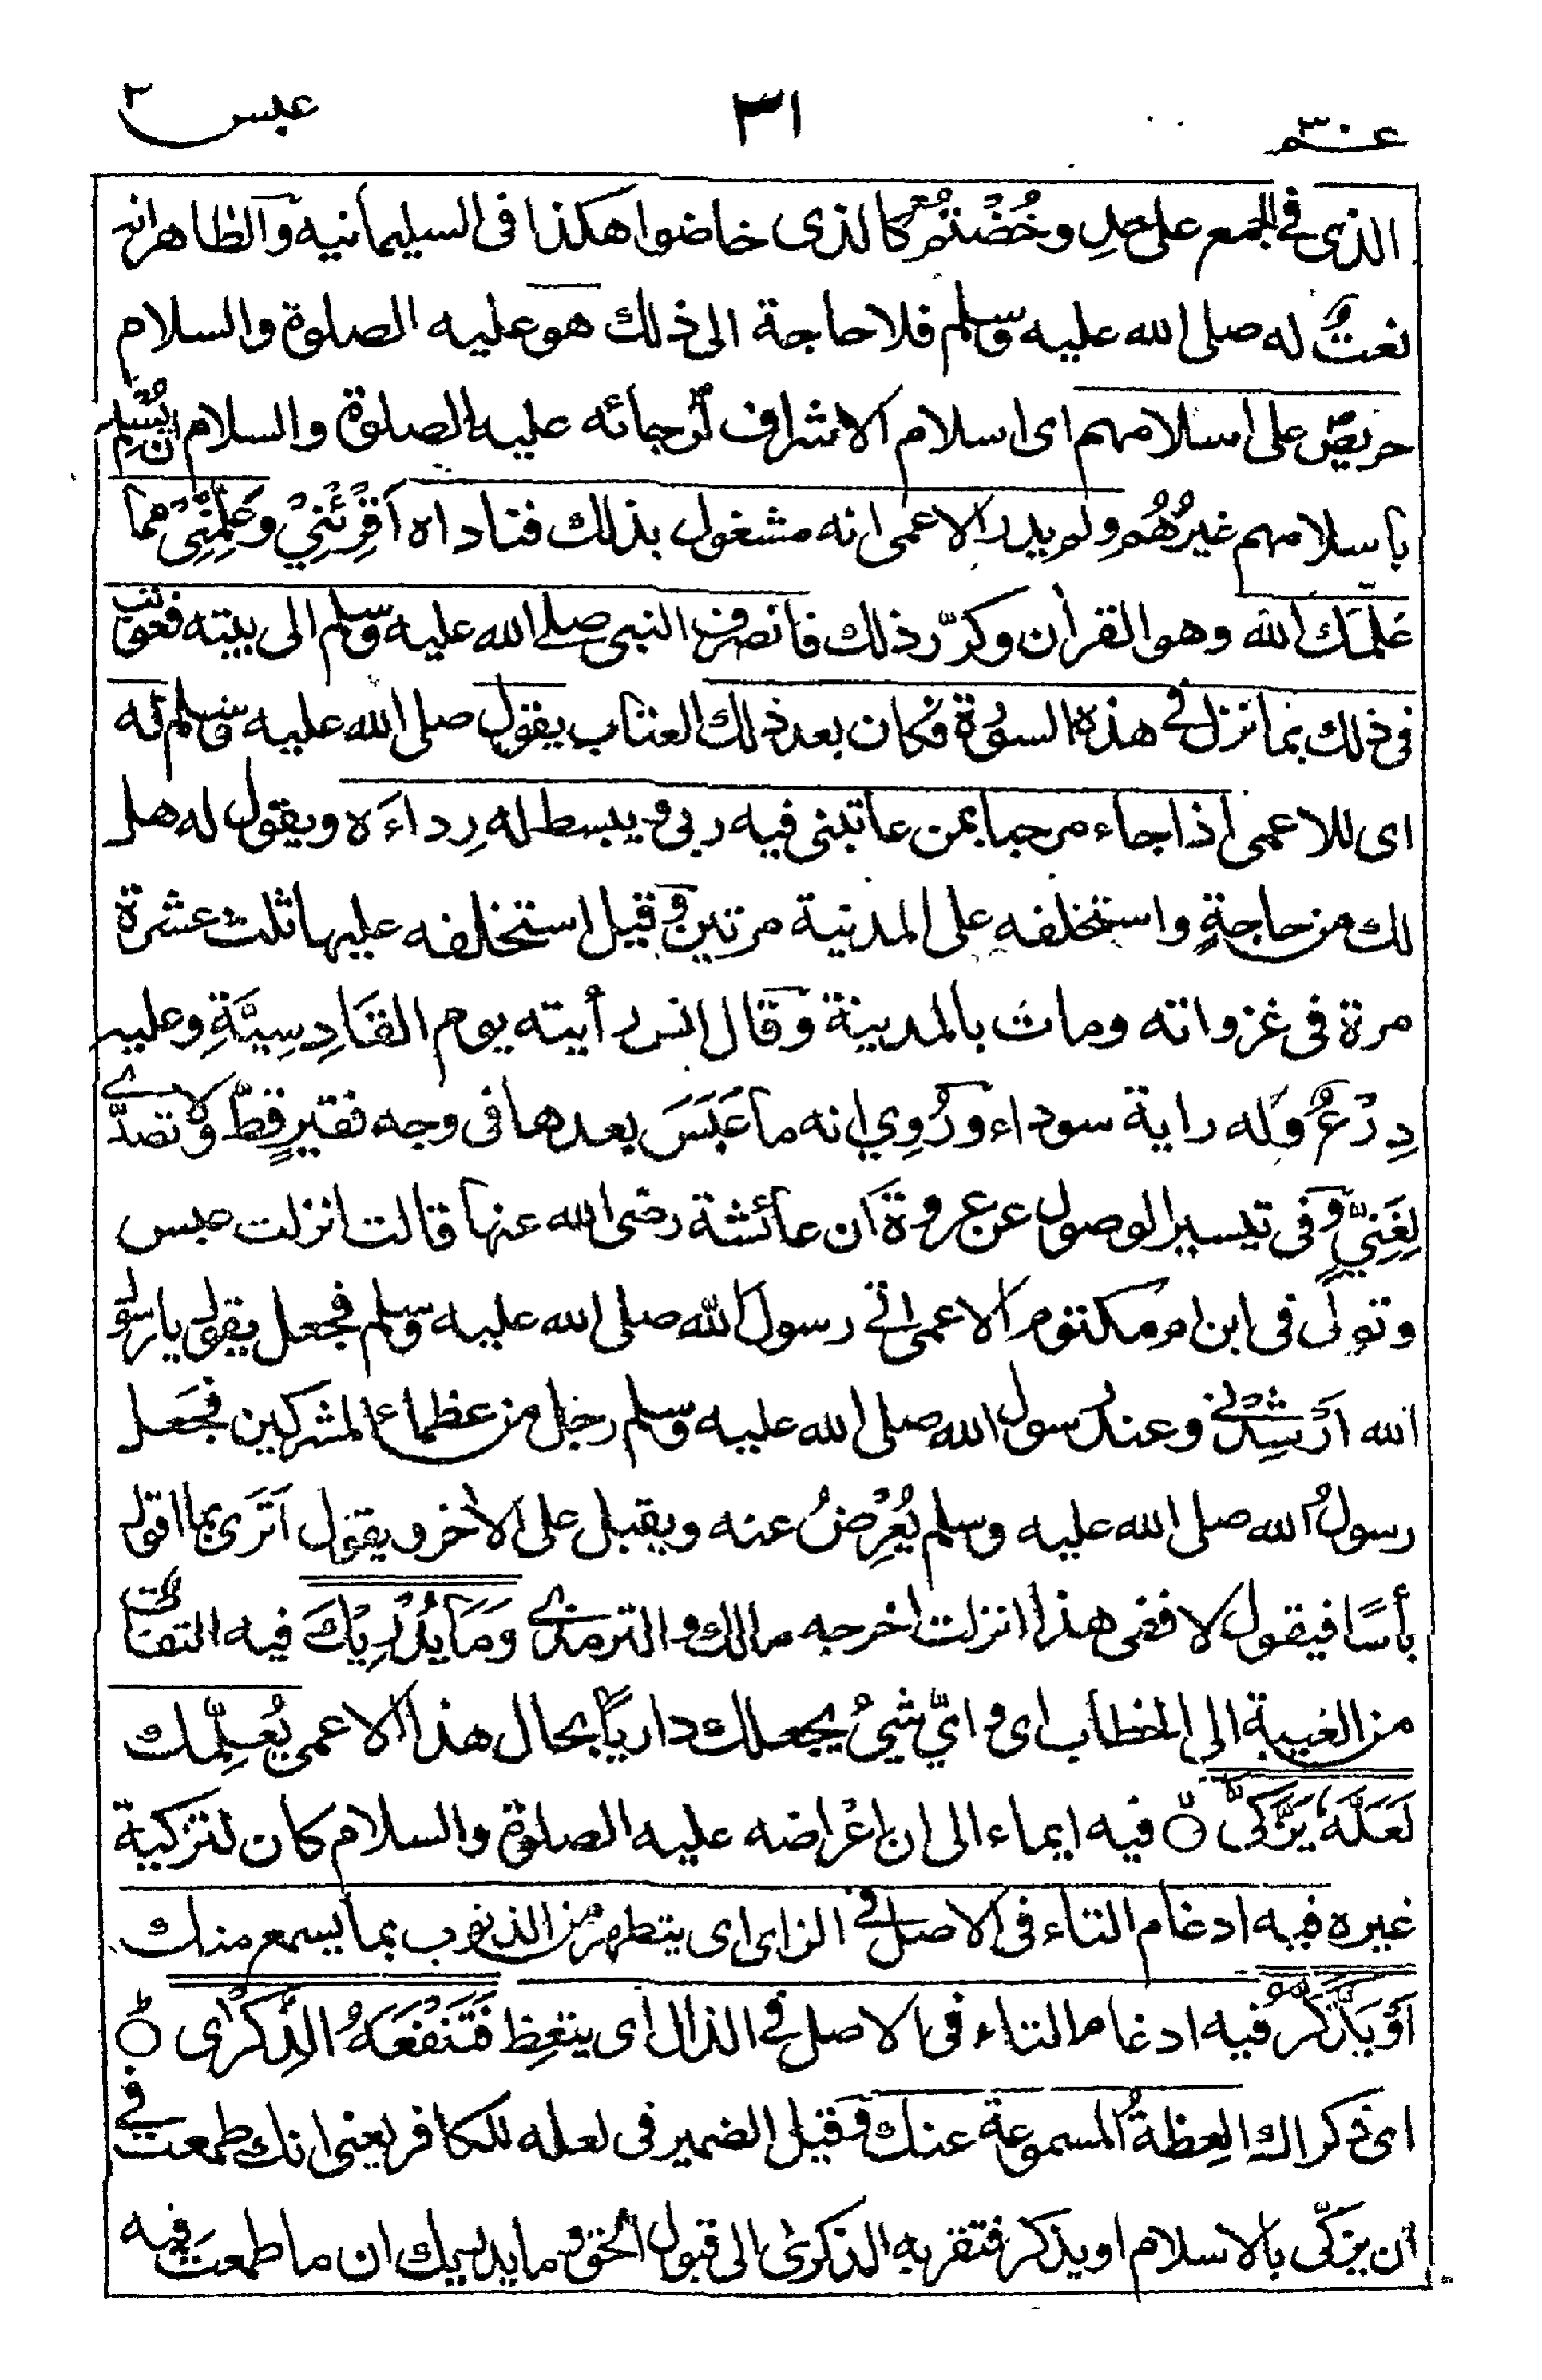 عم ٣٠ ٣١ عبس
الذى فى الجمع على حدِ وخُضْتُمْ كالذى خاضوا هكذا فى السليمانية والظاهرانه
نعتٌ له صلى الله عليه وسلم فلا حاجة الى ذلك هو عليه الصلوة والسلام
حريصٌ على اسلامهم اى اسلام الاشراف لرجائه عليه الصلوة والسلام ان يُسْلِمَ
باسلامهم غيرُهُم ولم يدر الاعمى انه مشغول بذلك فناداه اَقْرِئْنِيْ وعَلِّمْنِيْ مما
عَلَّمَك الله وهو القرأن وكرّر ذلك فانصرف النبى صلى الله عليه وسلم الى بيته فعوتب
فى ذلك بما نزل فى هذه السورة فكان بعد ذلك العتاب يقول صلى الله عليه وسلم له
اى للاعمى اذا جاء مرحبا بمن عاتبنى فيه ربى و يبسط له رِداءَه ويقول له هل
لك من حاجةٍ واستخلفه على المدنية مرتين وقيل استخلفه عليها ثلث عشرة
مرة فى غزواته ومات بالمدينة وقال انس رأيته يوم القَادِسِيَّةِ وعليه
دِرْعٌ وله راية سوداء ورُوِي انه ما عَبَسَ بعدها فى وجه فقيرٍ قطّ ولا تصدّے
لِغَنِيٍّ وفى تيسير الوصول عن عروة ان عائشة رضى الله عنها قالت انزلت عبس
وتولّى فى ابن ام مكتوم الاعمى اتى رسول الله صلى الله عليه وسلم فجعل يقول يا رسول
الله اَرْشِدْنى وعند رسول الله صلى الله عليه وسلم رجل من عظماء المشركين فجَعل
رسولُ الله صلى الله عليه وسلم يُعْرِضُ عنه ويقبل على الأخر ويقول اَتَرَى بما اقول
بأسًا فيقول لا ففى هذا انزلت اخرجه مالك والترمذے وَمَا يُدْرِيْكَ فيه التفات
من الغيبة الى الخطاب اى و ايّ شيءٌ يجعلك داريًا بحال هذا الاعمى يُعلِّمك
لَعَلَّهٗ يَزَّكّٰىۙ فيه ايماء الى ان اعْراضه عليه الصلوة والسلام كان لتزكية
غيره فيه ادغام التاء فى الاصل فى الزاى اى يتطهر من الذنوب بما يسمع منك
اَوْ يَذَّكَّرُ فيه ادغام التاء فى الاصل فى الذال اى يتعِظ فَتَنْفَعَهُ الذِّكْرٰى
اى ذكراك العِظةُ المسموعة عنك وقيل الضمير فى لعله للكافر يعنى انك طمعت فى
ان يزكّى بالاسلام او يذكر فتقربه الذكرىٰ الى قبول الحق وما يدريك ان ما طمعتَ فيه